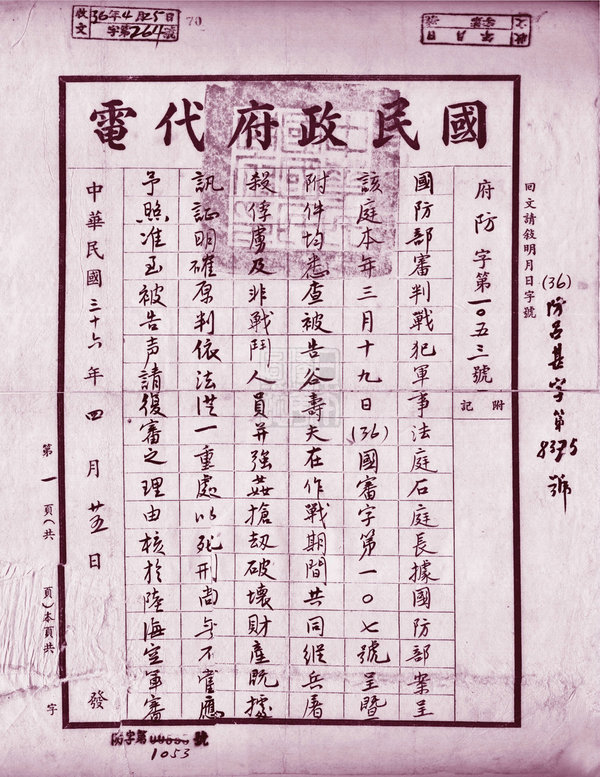 收文 36年4月25日
字第264號
70
收文 年月日
字第 號
國民政府代電
回文請敍明月日字號
(36)防呂甚字第8375號
府防字第一〇五三號
附記
國防部審判戰犯軍事法庭石庭長據國防部案呈
該庭本年三月十九日(36)國審字第一〇七號呈暨
附件均悉查被告谷壽夫在作戰期間共同縱兵屠
殺俘虜及非戰鬥人員并強姦搶劫破壞財產既據
訊証明確原判依法從一重處以死刑尚無不當應
予照准至被告声請復審之理由核於陸海空軍審
中華民國三十六年四月廿五日發
第一頁(共 頁)本頁共 字
防字第 號
1053